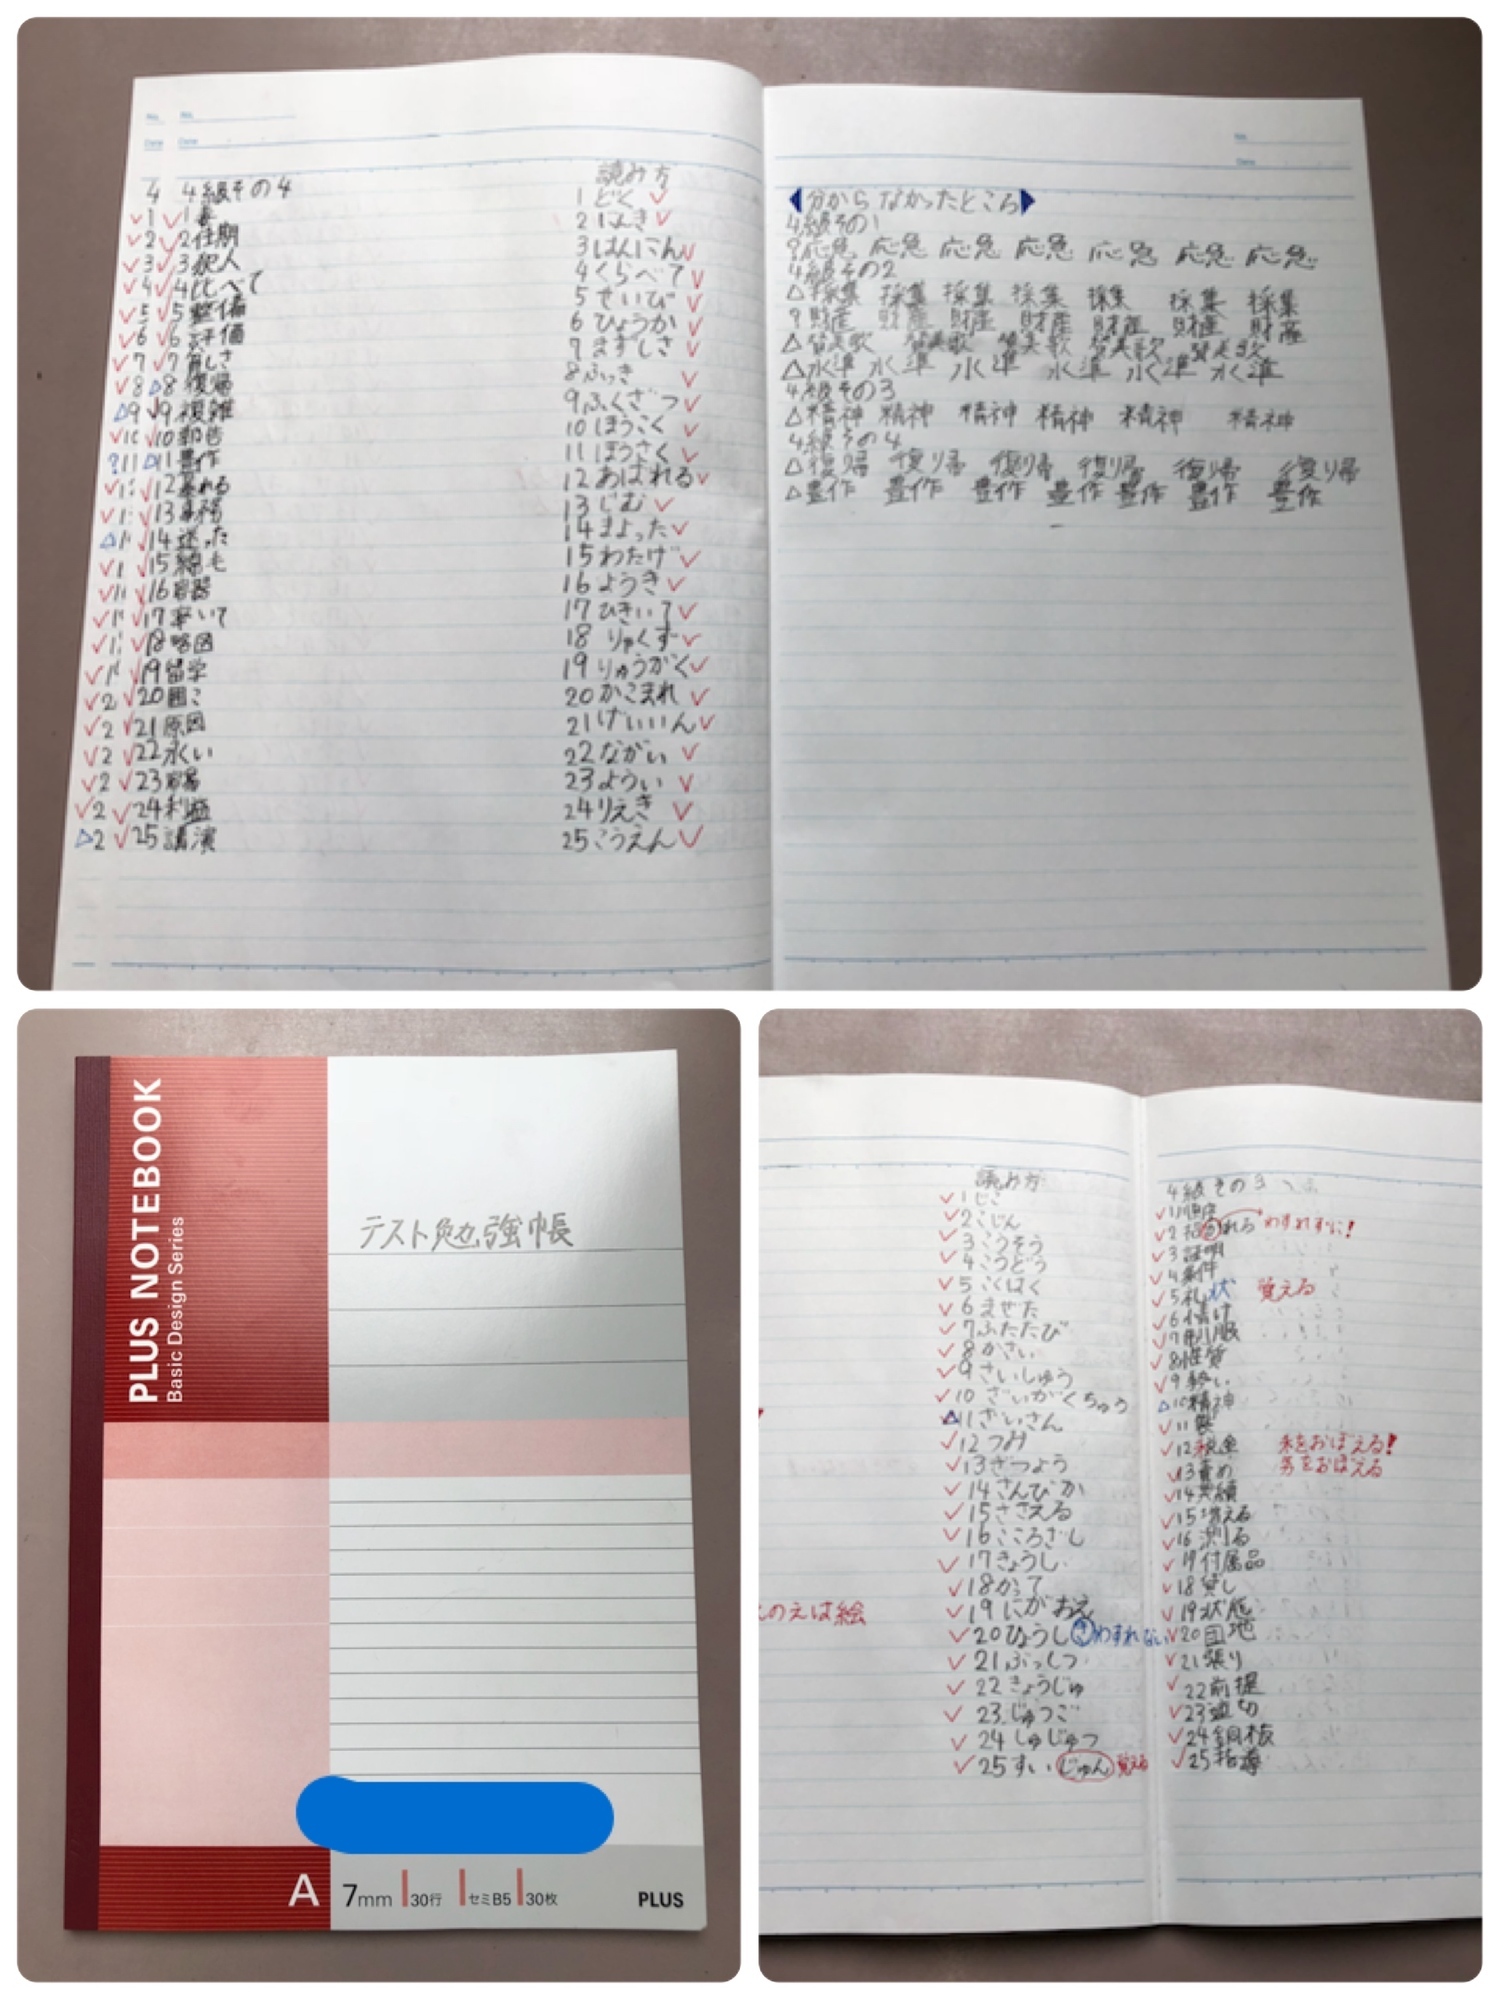 No.
No.
Date
Date
4 4級その4
1 1毒
2 2任期
3 3犯人
4 4比べて
5 5整備
6 6評価
7 7貧しさ
8 8復帰
9 9複雑
10 10報告
11 11豊作
12暴れる
13事務
14迷った
15綿毛
16容器
17率いて
18略図
19留学
2 20囲こ
2 21原因
2 22永い
2 23容易
2 24利益
2 25講演
読み方
1どく
2にんき
3はんにん
4くらべて
5せいび
6ひょうか
7まずしさ
8ふっき
9ふくざつ
10ほうこく
11ほうさく
12あばれる
13じむ
14まよった
15わたげ
16ようき
17ひきいて
18りゃくず
19りゅうがく
20かこまれ
21げいいん
22ながい
23ようい
24りえき
25こうえん
No.
Date
分からなかったところ
4級その1
?応急 応急 応急 応急 応急 応急 応急
4級その2
△採集 採集 採集 採集 採集 採集 採集
?財産 財産 財産 財産 財産 財産 財産
△賛美歌 賛美歌 賛美歌 賛美歌 賛美歌
△水準 水準 水準 水準 水準 水準
4級その3
△精神 精神 精神 精神 精神 精神
4級その4
△復帰 復帰 復帰 復帰 復帰 復帰
△豊作 豊作 豊作 豊作 豊作 豊作 豊作
PLUS NOTEBOOK
Basic Design Series
テスト勉強帳
A 7mm 30行 セミB5 30枚 PLUS
のえは絵
読み方
1じこ
2こじん
3こうそう
4こうどう
5こくはく
6まぜた
7ふたたび
8かさい
9さいしゅう
10ざいがくちゅう
11ざいさん
12つみ
13ざつよう
14さんびか
15ささえる
16こころざし
17きょうし
18かって
19にがおえ
20ひょうし わすれない
21ぶっしつ
22きょうじゅ
23じゅつご
24しゅじゅつ
25すいじゅん 覚える
4級その3
1順序
2招かれる わすれずに!
3証明
4条件
5礼状 覚える
6情け
7制服
8性質
9勢い
10精神
11製
12税金 禾をおぼえる!
13責め 丯をおぼえる
14実績
15増える
16測る
17付属品
18貸し
19状態
20団地
21張り
22前提
23適切
24銅板
25指導